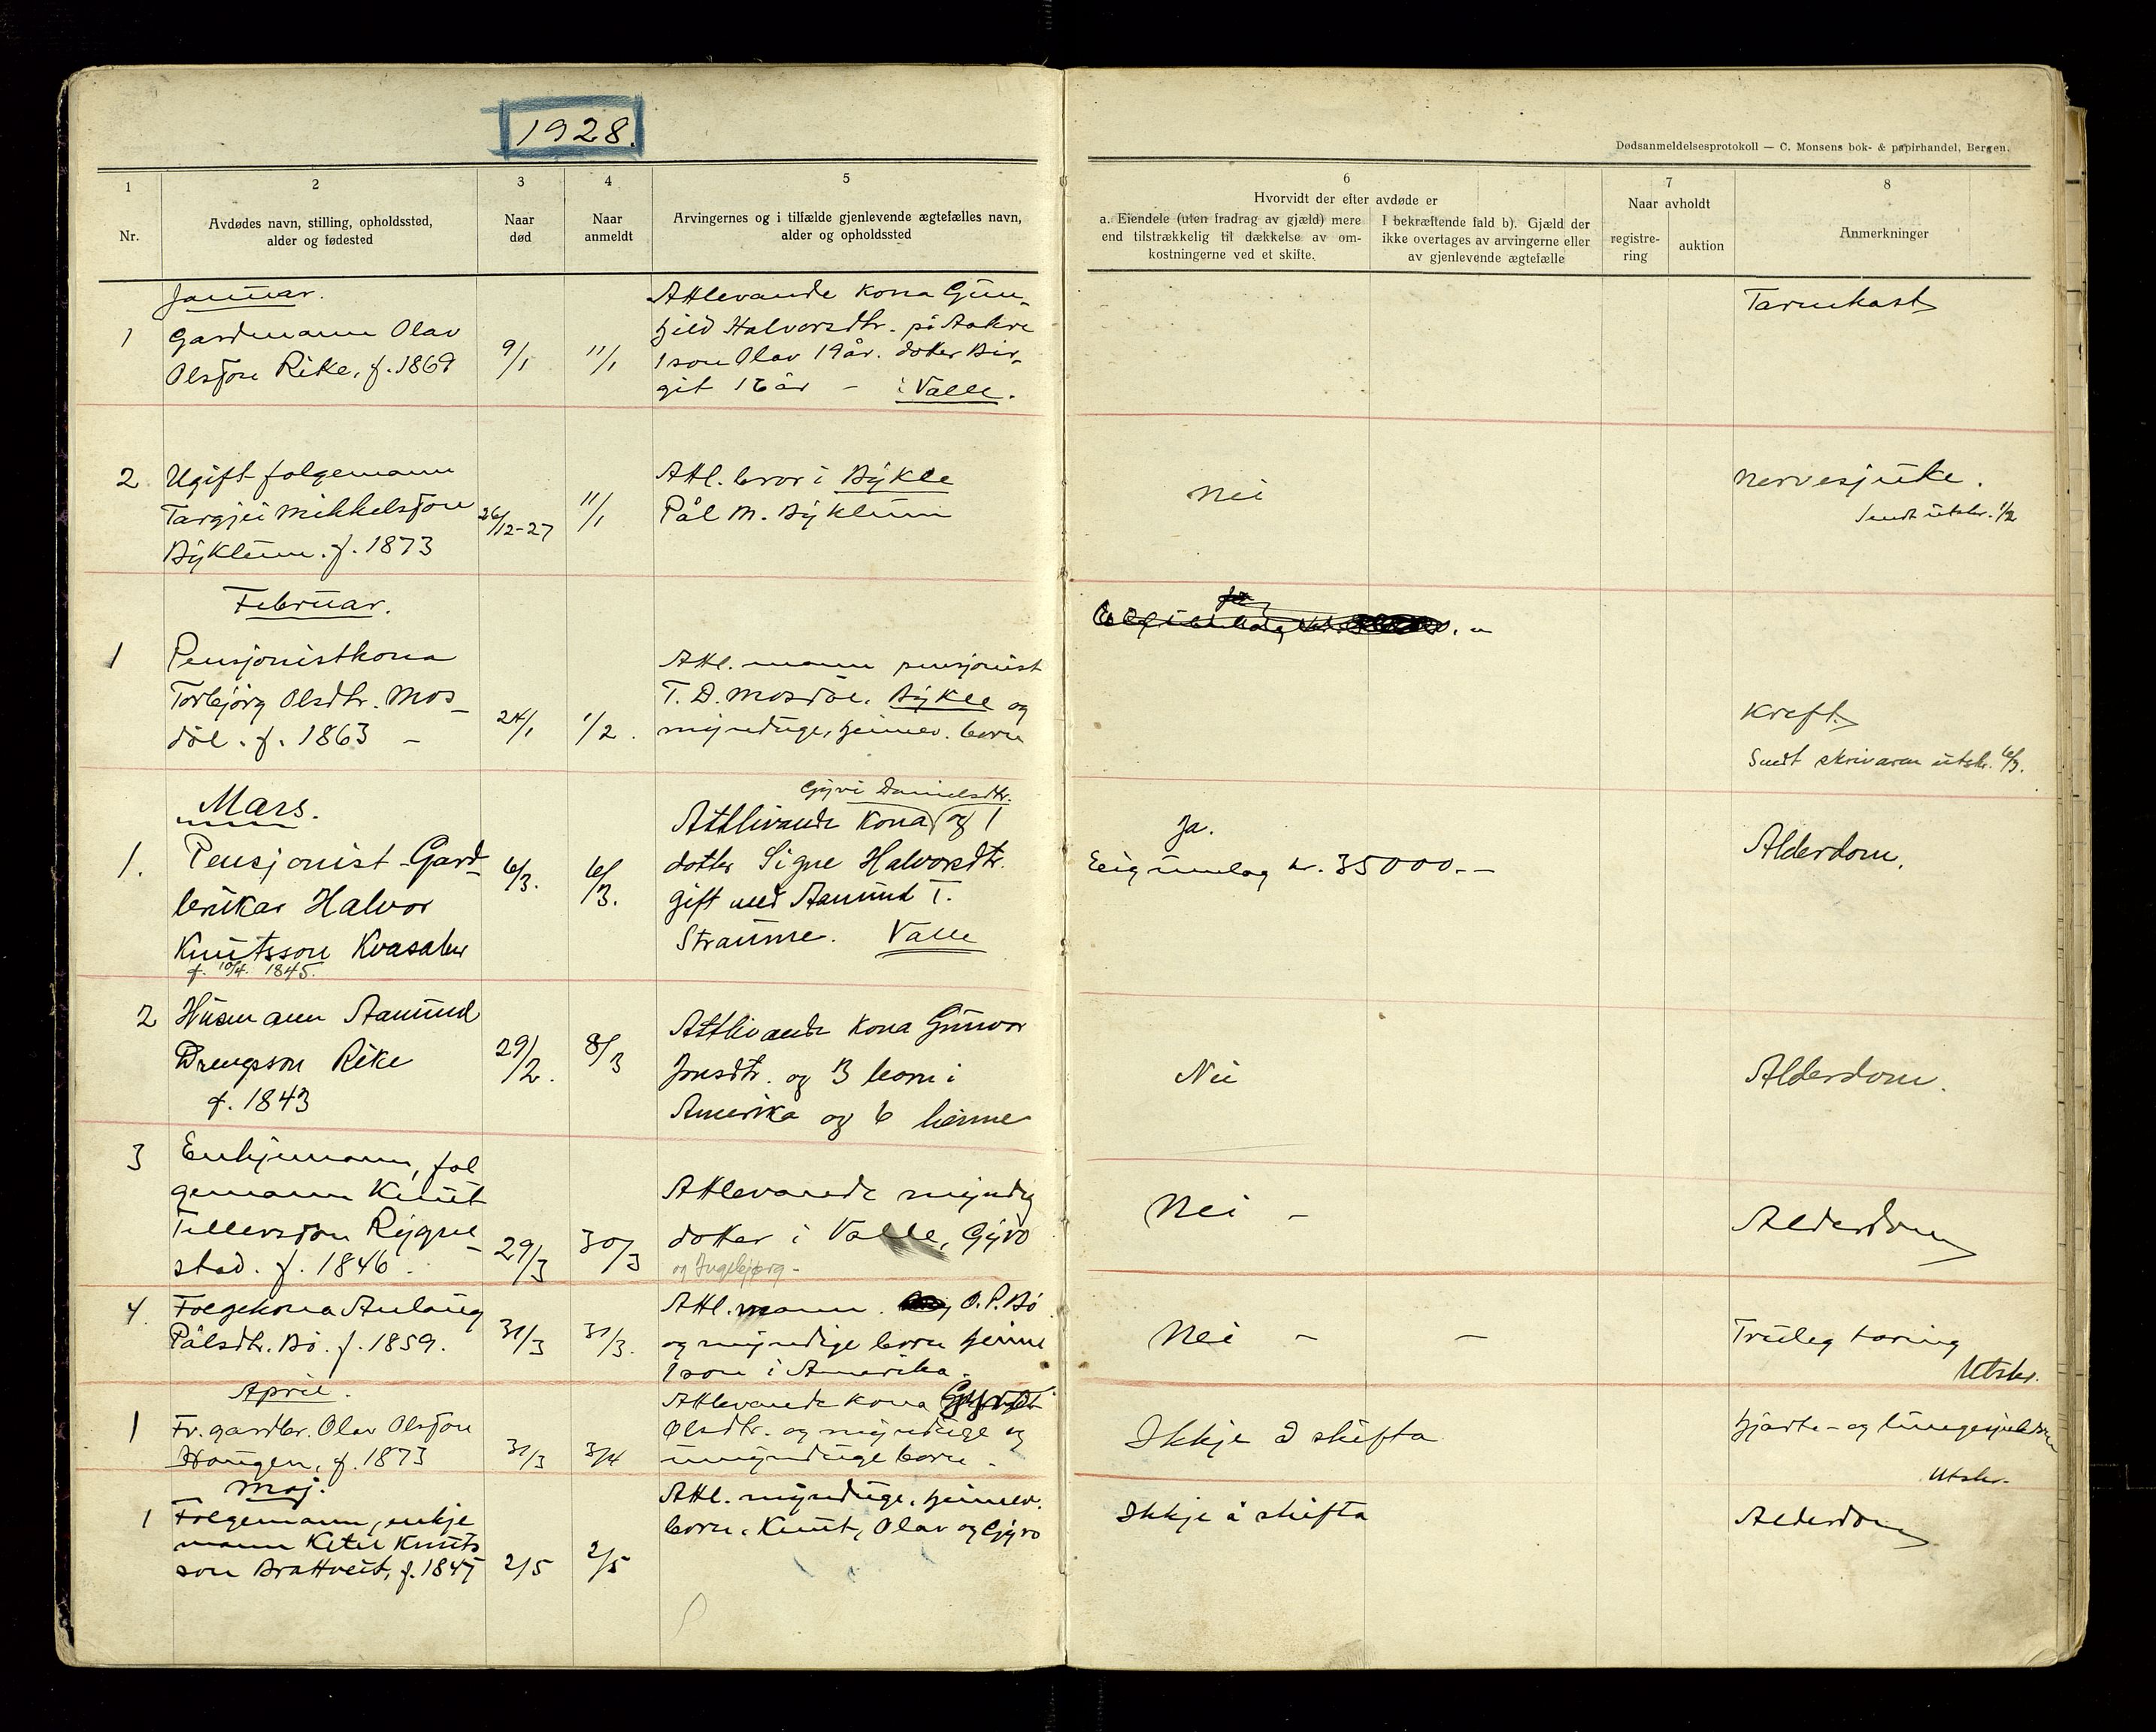 1928.
Dødsanmeldelsesprotokoll — C. Monsens bok- & papirhandel, Bergen.
1 2 3 4 5 6 7 8
Nr.
Avdødes navn, stilling, opholdssted,
alder og fødested
Naar
død
Naar
anmeldt
Arvingernes og i tilfælde gjenlevende ægtefælles navn,
alder og opholdssted
Hvorvidt der efter avdøde er
a. Eiendele (uten fradrag av gjæld) mere
end tilstrækkelig til dækkelse av om-
kostningerne ved et skifte.
I bekræftende fald b). Gjæld der
ikke overtages av arvingerne eller
av gjenlevende ægtefælle
Naar avholdt
registre-
ring
auktion
Anmerkninger
Januar.
1
Gardmann Olav
Olsson Rike, f. 1869
9/1
11/1
Attlevande kona Gun-
hild Halvorsdtr. på Aakre
1 son Olav 19 år. dotter Bir-
git 16 år – i Valle.
Tarmkast
2
Ugift folgemann
Targjei Mikkelsson
Byklum. f. 1873
26/12-27
11/1
Attl. bror i Bykle
Pål M. Byklum
Nei
Nervesjuke.
Sendt utskr. 1/2
Februar.
1
Pensjonistkona
Torbjörg Olsdtr. Mos-
döl. f. 1863 –
24/1
1/2.
Attl. mann pensjonist
T. D. Mosdöl. Bykle og
mynduge, heimev. born
Kreft.
Sendt skrivaren utskr. 6/3.
Mars.
1.
Pensjonist-Gard-
brukar Halvor
Knutsson Kvasaker
f. 10/4. 1845.
6/3.
6/3.
Gyvi Danielsdtr.
Attlivande kona og 1
dotter Signe Halvorsdtr.
gift med Aamund T.
Straume. Valle
Ja.
Eigumlag kr. 35000.-–
Alderdom.
2
Husmann Aamund
Drengsson Rike
f. 1843
29/2.
8/3
Attlivande kona Gunvor
Jonsdtr. og 3 born i
Amerika og 6 heime
Nei
Alderdom.
3
Enkjemann, fol
gemann Knut
Tellevsson Rygne-
stad. f. 1846.
29/3
30/3
Attlevande myndig
dotter i Valle, Gyro
og Ingebjørg -
Nei –
Alderdom
4.
Folgekona Anlaug
Pålsdtr. Bö. f. 1859.
31/3
31/3.
Attl. mann. O. P. Bö
og myndige born heime
1 son i Amerika.
Nei – –
Truleg tæring
Utskr.
April.
1
Fr. gardbr. Olav Olsson
Haugen, f. 1873
31/3
3/4
Attlevande kona
Olsdtr. og myndige og
umyndige born.
Ikkje å skifta
Hjarte- og lungesjukdom
Utskr.
Maj.
1
Folgemann, enkje
mann Ketil Knuts
son Brattveit, f. 1847
2/5
2/5
Attl. myndige. heimev.
born. Knut, Olav og Gyro
Ikkje å skifta
Alderdom